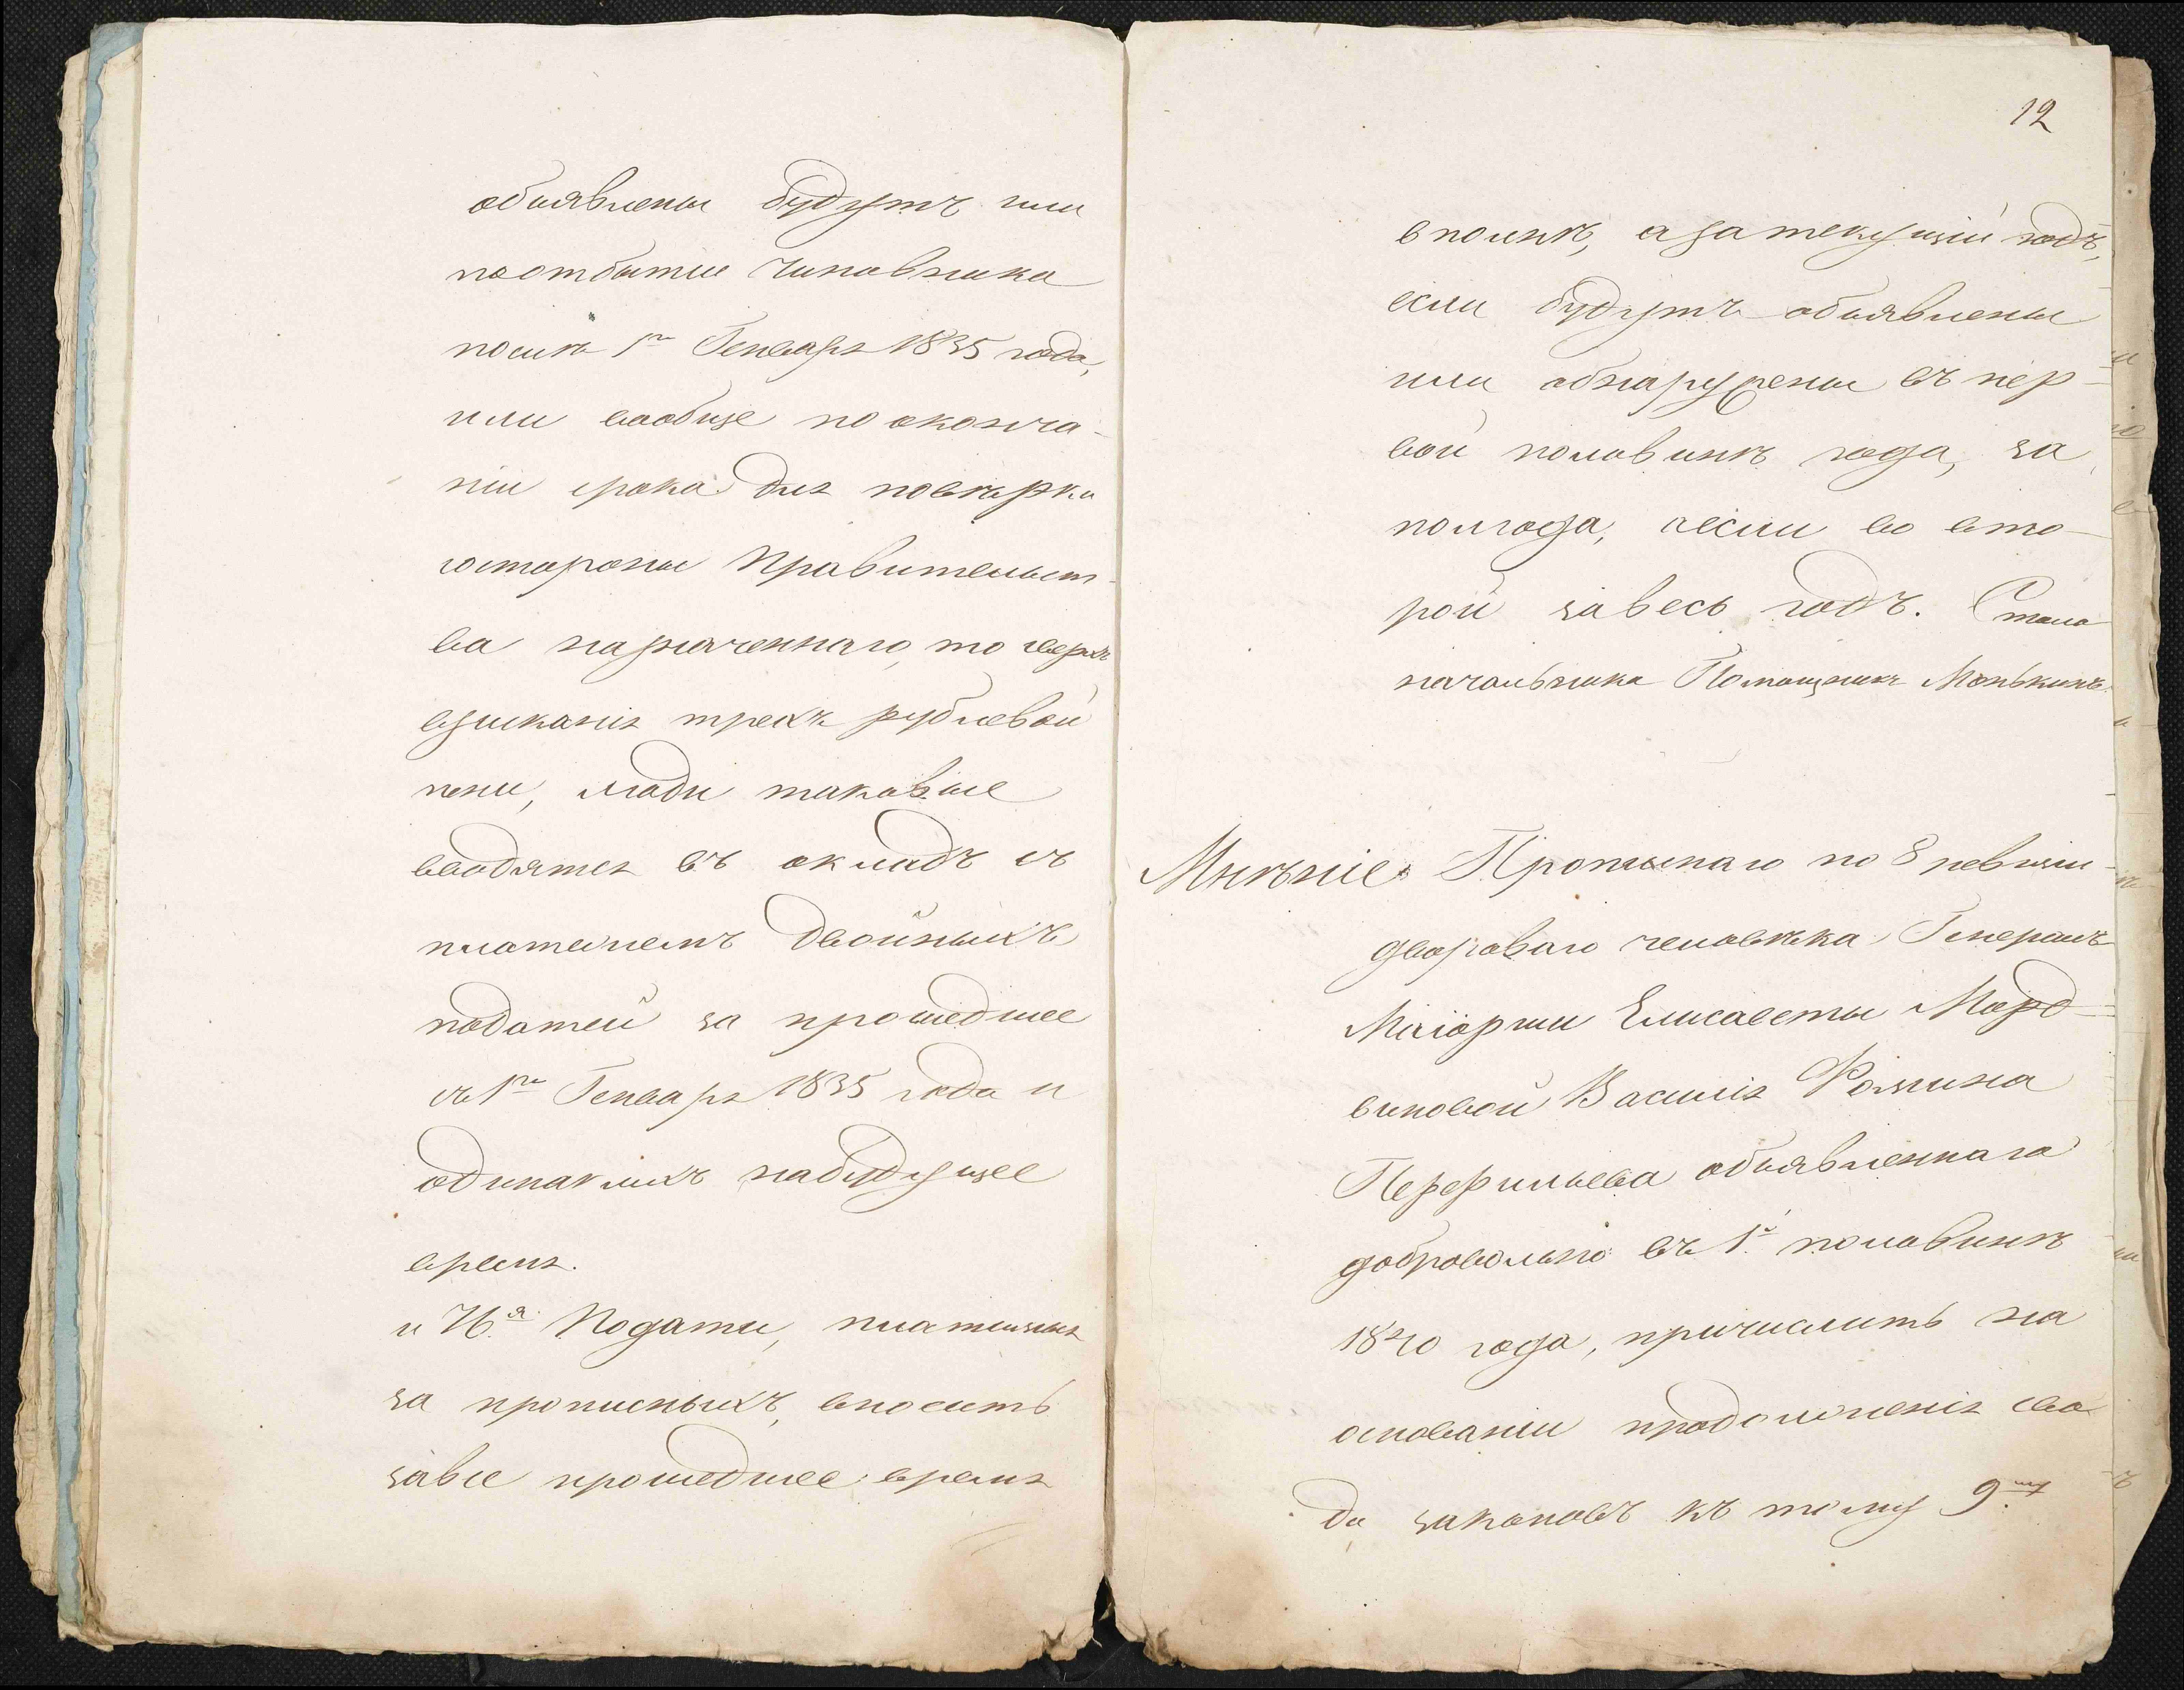 объявлены будутъ или
поотбытіи чиновника
после 1го Генваря 1835 года,
или вообще по оконча-
ніи срока для поверки
состороны Правительст-
ва назначеннаго, то сверхъ
взысканія трехъ рублевой
пени, люди таковые
вводятся въ окладъ съ
платежемъ двойныхъ
податей за прошедшее
съ 1го Генваря 1835 года и
одинакихъ набудущее
время.
и 76.я Подати, платимыя
за прописныхъ, вносить
завсе прошедшее время
12
вполнѣ, а за текущій годъ,
если будутъ объявлены
или обнаружены въ пер-
вой половинѣ года, за
полгода, аесли во вто-
рой завесь годъ. Стола
начальника Помощникъ Монькинъ.
Мнѣніе. Прописнаго по 8 ревизіи
двороваго человѣка Генералъ
Маіорши Елисаветы Морд-
виновой Василія Фомина
Перфильева объявленнаго
добровольно въ 1й половинѣ
1840 года, причислить на
основаніи продолженія сво-
да законовъ къ тому 9.му